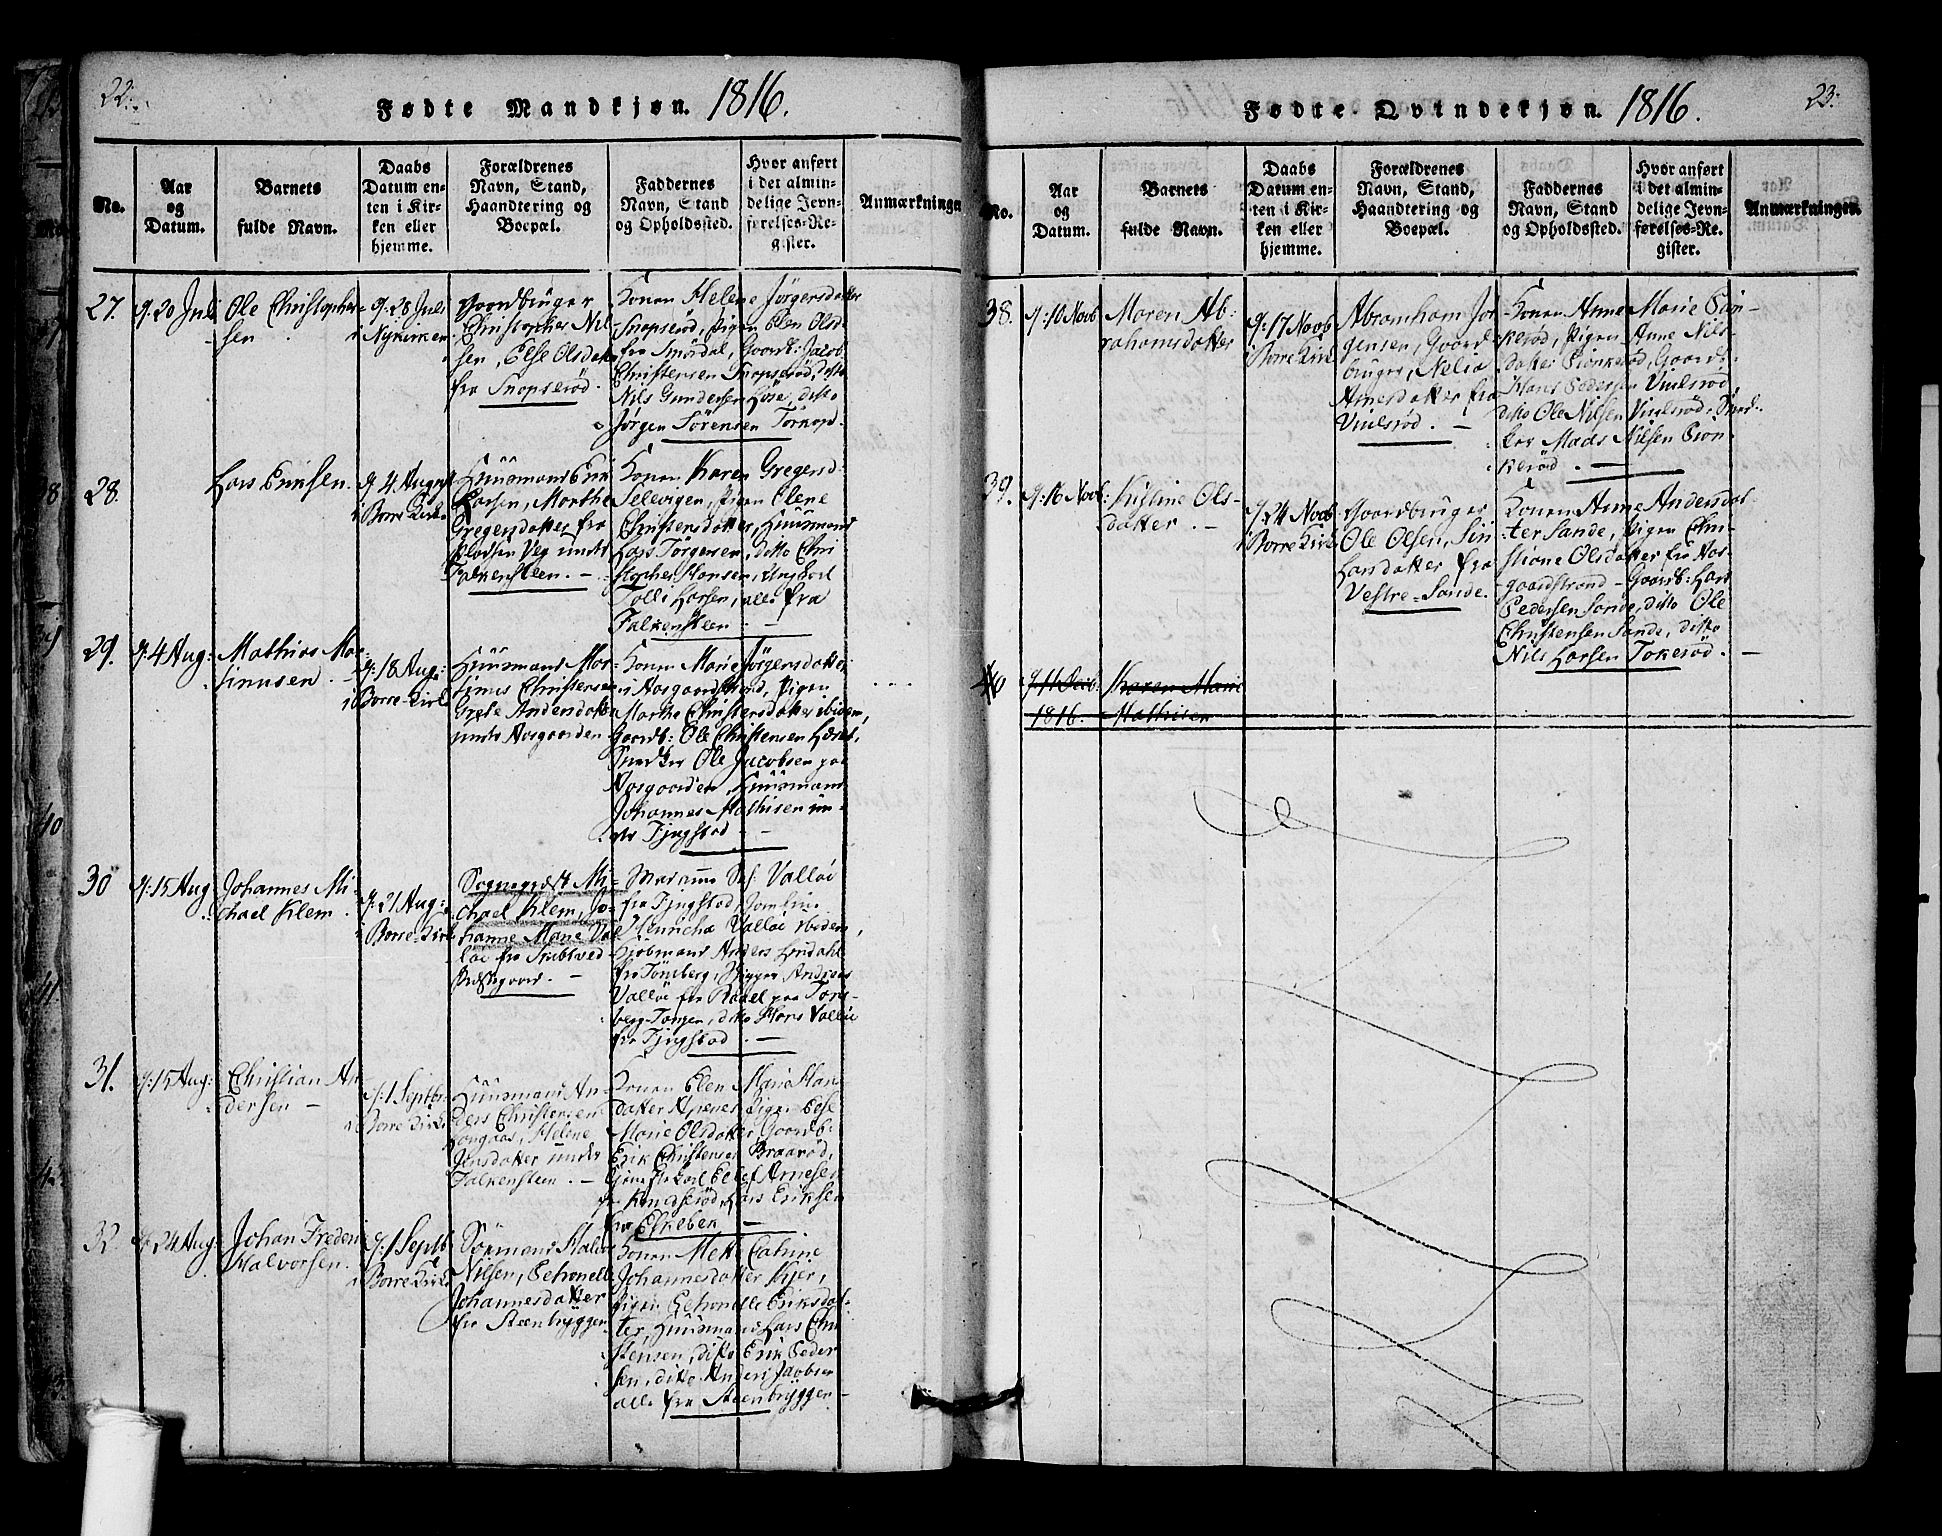 22.
Fødte Mandkjøn. 1816.
No.
Aar
og
Datum.
Barnets
fulde Navn.
Daabs
Datum en-
ten i Kir-
ken eller
hjemme.
Forældrenes
Navn, Stand,
Haandtering og
Boepæl.
Faddernes
Navn, Stand
og Opholdssted.
Hvor anført
i det almin-
delige Jevn-
førelses-Re-
gister.
Anmærkninger
27.
d: 20 Juli
Ole Christopher-
sen
d: 28 Juli
i Nykirken
Gaardbruger
Christopher Nil-
sen, Else Olsdatter
fra Snopserød.
Konen Helene Jørgensdatter
Snopserød, Pigen Elen Olsd:
fra Smørdal, Gaardb: Jacob
Christensen Snopserød, ditto
Nils Gundersen
Jørgen Sørensen Torkop.
28.
Lars Eriksen.
d. 4 Aug:
i Borre Kirke
Huusmand Erik
Larsen, Marthe
Gregersdatter fra
Veg under
Falkensteen.
Konen Karen Gregersd:
Pigen Elene
Christensdatter, Huusmand
Lars Jørgensen, ditto Chri-
stopher Hansen, Ungkarl
Larsen, alle fra
Falkensteen.
29.
d. 4 Aug:
Mathias Mar-
tinusen.
d: 18 Aug:
i Borre Kirke
Huusmand Mar-
tinus Christensen
Grete Andersdatter
under Aasgaarden
Konen Marie Jørgensdatter
i Aasgaardstrand, Pigen
Marthe Christensdatter ibidem,
Gaardb: Ole Christensen
Snedker Ole Jacobsen paa
Aasgaarden, Huusmand
Johannes Mathisen un-
der Fjugstad.
30
d: 15 Aug
Johannes Mi-
chael Klem.
d. 21 Aug:
i Borre Kirke
Sognepræst Mi-
chael Klem, Jo-
hanne Marie Val-
løe fra
Præstgaard.
Valløe
fra Fjugstad, Jomfrue
Henricha Valløe ibidem,
Kjøbmand Anders
fra Tønsberg, Andreas
Valløe fra paa Tøns-
berg-Tangen, ditto Hans Valløe
fra Fjugstad.
31.
d: 15 Aug:
Christian An-
dersen
d. 1 Septbr:
i Borre Kirke
Huusmand An-
ders Christensen
Helene
Jensdatter under
Falkensteen.
Konen Elen Marie Han-
datter Apenes, Pigen Else
Marie Olsdatter, Gaardb:
Erik Christensen Braarød,
Arnesen
Knudserød, Lars Eriksen
fra Ekebek
32.
d. 24 Aug:
Johan Frederi
Halvorsen.
d. 1 Septb
i Borre Kirke
Sømand Halvor
Nilsen, Petronelle
Johannesdatter
fra Steenbryggen
Konen Mette Catrine
Johannesdatter Kjær,
Pigen Petronelle Eriksdat-
ter, Huusmand Lars Chri-
stensen, ditto Erik Peder-
sen, ditto Anders Jacobsen
alle fra Steenbryggen
23.
Fødte Qvindekjøn. 1816.
No.
Aar
og
Datum.
Barnets
fulde Navn.
Daabs
Datum en-
ten i Kir-
ken eller
hjemme.
Forældrenes
Navn, Stand,
Haandtering og
Boepæl.
Faddernes
Navn, Stand
og Opholdssted.
Hvor anført
i det almin-
delige Jevn-
førelses-Re-
gister.
Anmærkninger.
38.
d: 10 Novb
Maren Ab-
rahamsdatter
d: 17 Novb
i Borre Kirke
Abramham Jør-
gensen, Gaard-
bruger, Nelia
Arnesdatter fra
Viulsrød.
Konen Anne Marie Pion-
kerød, Pigen Anne Nils-
datter Pionkerød, Gaardb:
Hans Pedersen Viulsrød,
ditto Ole Nilsen Viulsrød, Sned-
ker Mads Nilsen Pion-
kerød.
39.
d: 16 Novb:
Kistine Ols-
datter.
d. 24 Novb
i Borre Kirke
Gaardbruger
Ole Olsen, Siri
Larsdatter fra
Vestre-Sande.
Konen Anne Andersdat-
ter Sande, Pigen Chri-
stiane Olsdatter fra Aas-
gaardstrand Gaardb: Lars
Pedersen Sande, ditto Ole
Christensen Sande, ditto
Nils Larsen Tokerød.
40
d. 11 Novb:
1816.
Karen Marie
Mathisen